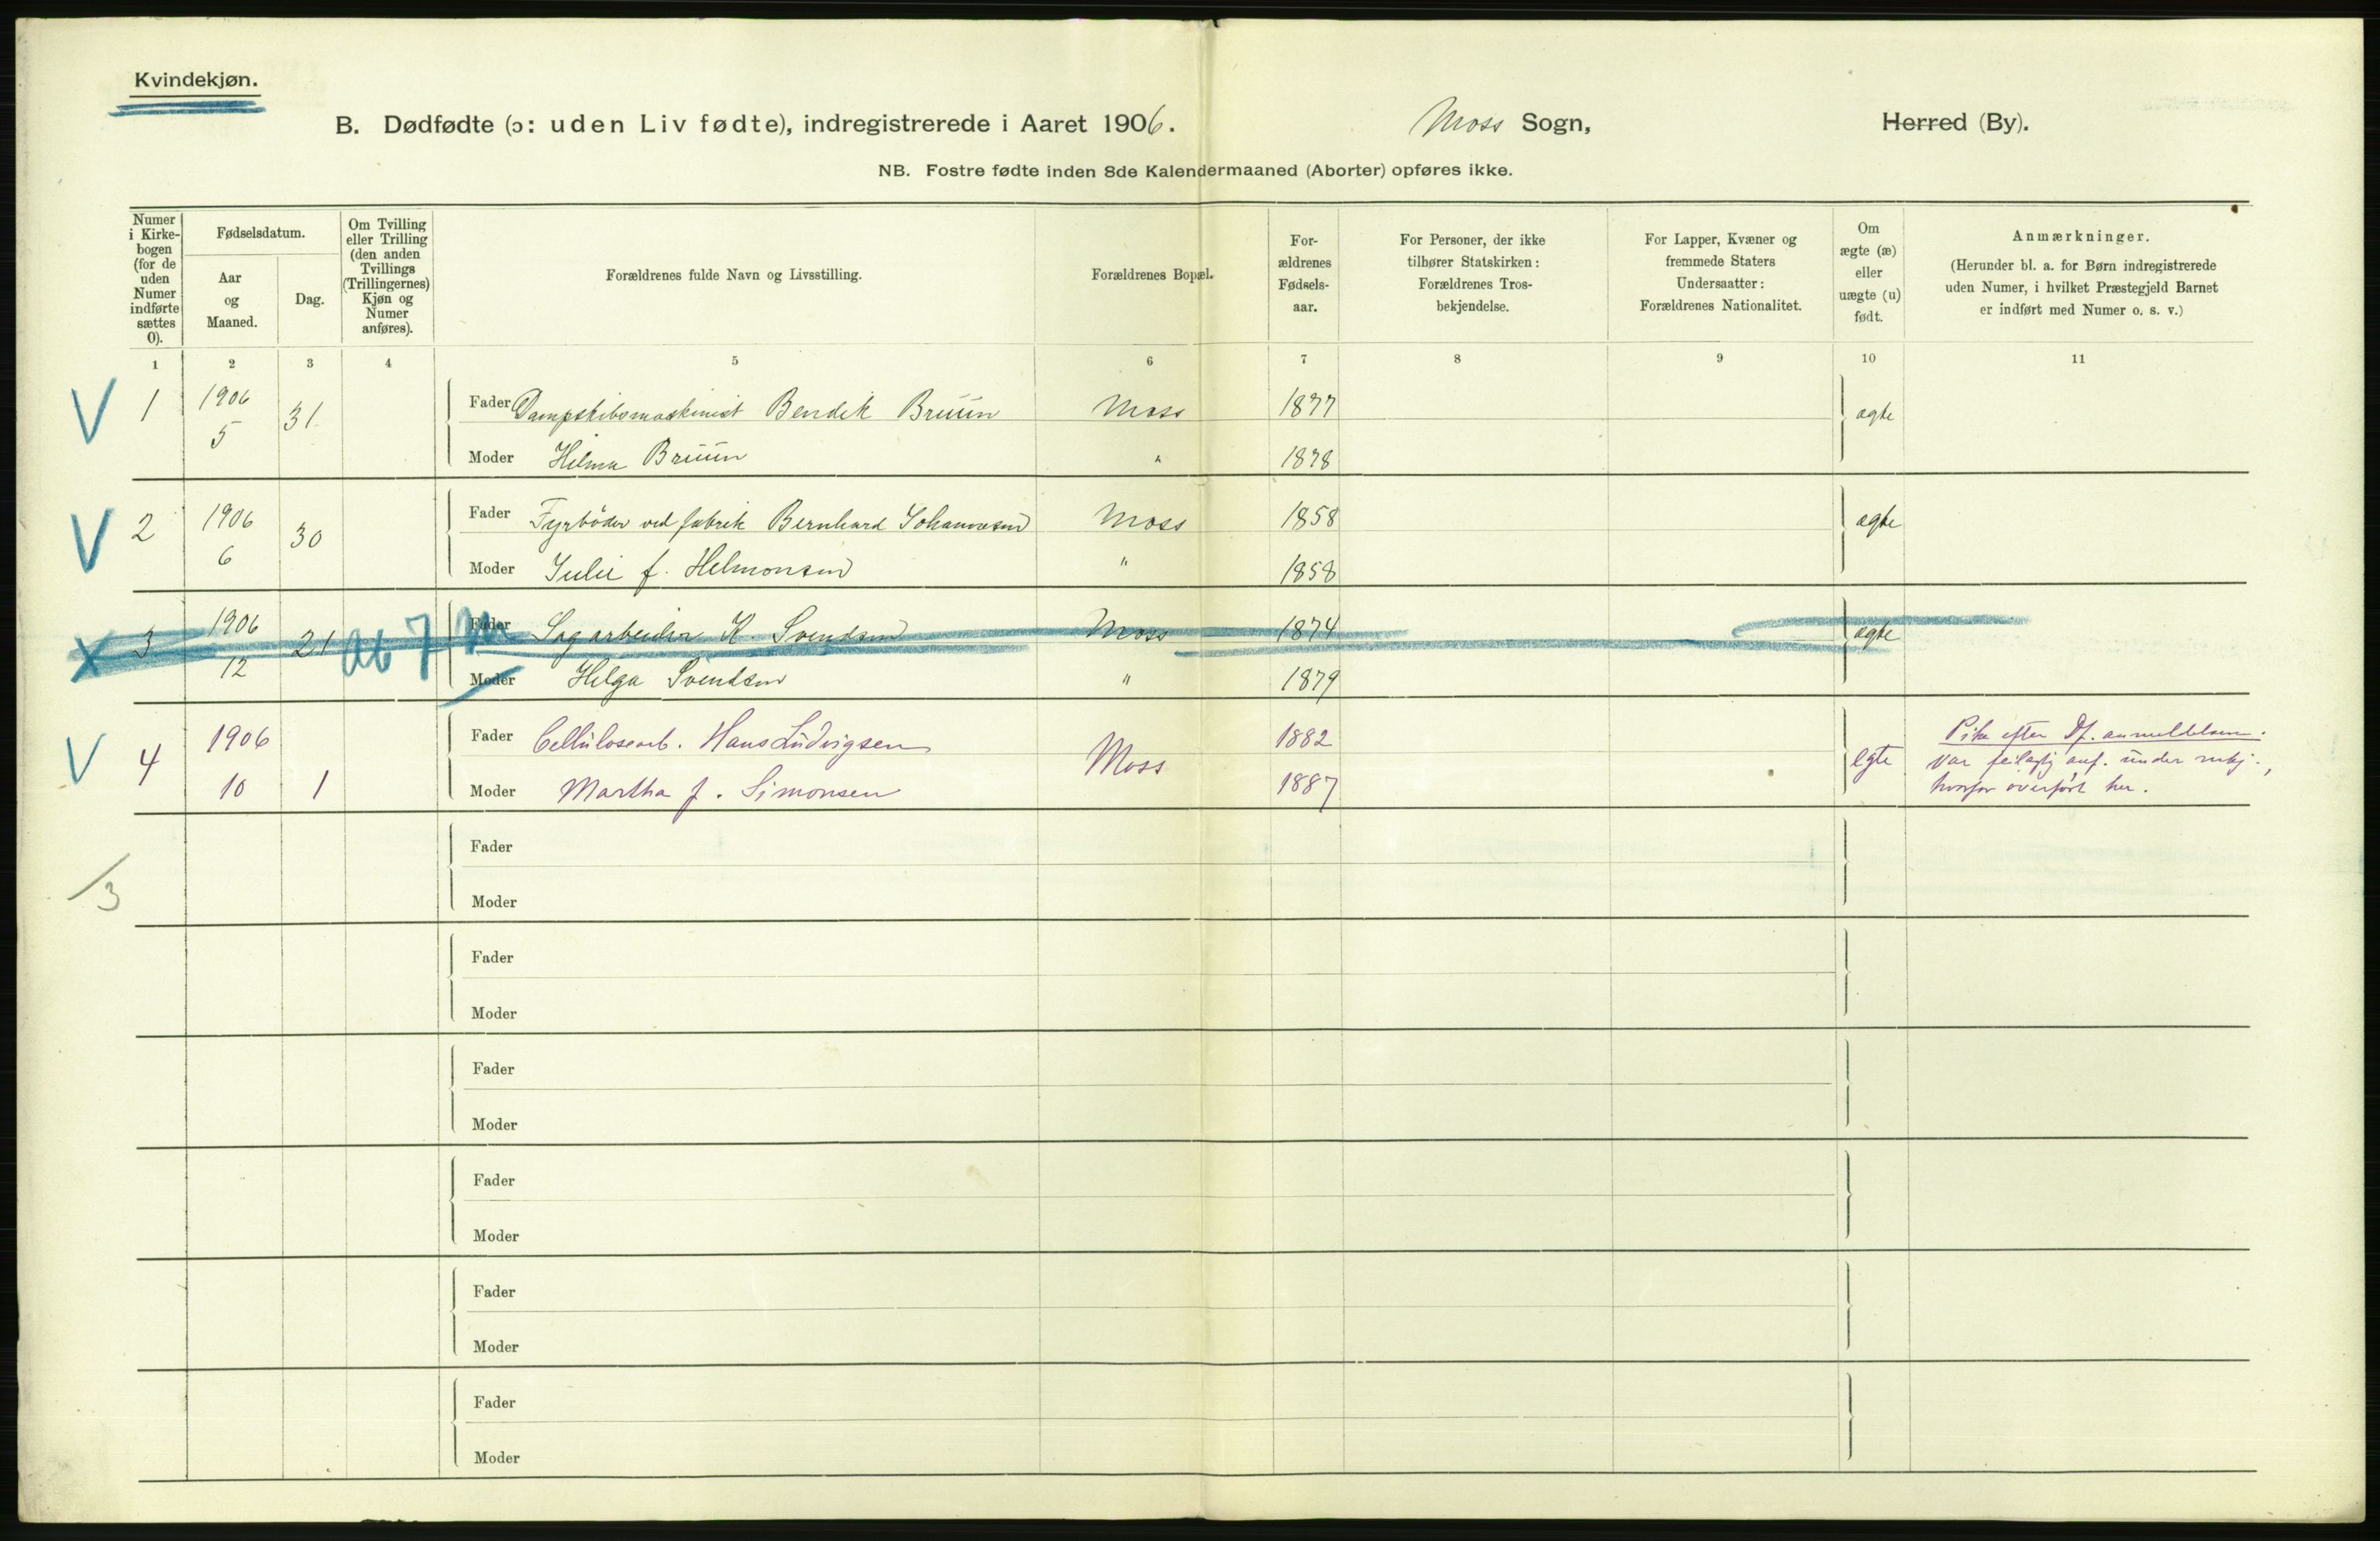 Kvindekjøn.
B. Dødfødte (ɔ: uden Liv fødte), indregistrerede i Aaret 1906. Moss Sogn, Herred (By).
NB. Fostre fødte inden 8de Kalendermaaned (Aborter) opføres ikke.
Numer i Kirkebogen (for de uden Numer indførte sættes 0).
Fødselsdatum.
Aar og Maaned.
Dag.
Om Tvilling eller Trilling (den anden Tvillings (Trillingernes) Kjøn og Numer anføres).
Forældrenes fulde Navn og Livsstilling.
Forældrenes Bopæl.
Forældrenes Fødselsaar.
For Personer, der ikke tilhører Statskirken: Forældrenes Trosbekjendelse.
For Lapper, Kvæner og fremmede Staters Undersaatter: Forældrenes Nationalitet.
Om ægte (æ) eller uægte (u) født.
Anmærkninger.
(Herunder bl. a. for Børn indregistrerede uden Numer, i hvilket Præstegjeld Barnet er indført med Numer o. s. v.)
1 2 3 4 5 6 7 8 9 10 11
V 1 1906 5 31 Fader Dampskibsmaskinist Bendik Bruun Moss 1877 ægte
Moder Hilma Bruun " 1878
V 2 1906 6 30 Fader Fyrbøder ved fabrik Bernhard Johannesen Moss 1858 ægte
Moder Julie f. Helmonsen " 1858
X 3 1906 12 21 ab 7 m Fader Sagarbeider K. Svendsen Moss 1874 ægte
Moder Helga Svendsen " 1879
V 4 1906 10 1 Fader Cellulosearb. Hans Ludvigsen Moss 1882 egte
Moder Martha f. Simonsen 1887
Pike efter Df. anmeldelsen.
var feilagtig anf. under mkj.,
hvorfor overført her.
/3
Fader
Moder
Fader
Moder
Fader
Moder
Fader
Moder
Fader
Moder
Fader
Moder